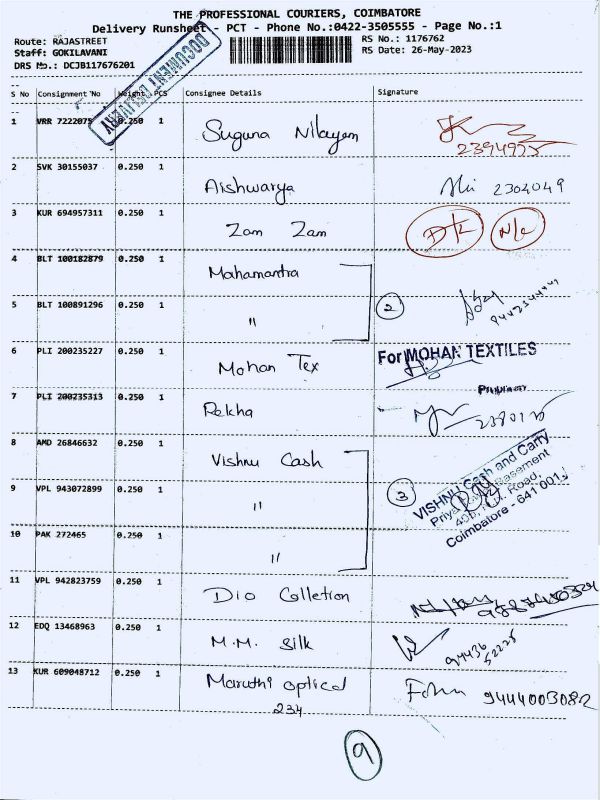 THE PROFESSIONAL COURIERS, COIMBATORE
Delivery Runsheet - PCT - Phone No.:0422-3505555 - Page No.:1
Route: RAJASTREET RS No.: 1176762
Staff: GOKILAVANI RS Date: 26-May-2023
DRS No.: DCJB117676201
DOCUMENT DELIVERY
S No Consignment No Weight PCS Consignee Details Signature
1 VRR 7222075 0.250 1 Suguna Nilayam
2394975
2 SVK 30155037 0.250 1 Aishwarya 2304049
3 KUR 694957311 0.250 1 Zam Zam D/L N/C
4 BLT 100182879 0.250 1 Mahamantra
5 BLT 100891296 0.250 1 " 2
6 PLI 200235227 0.250 1 Mohan Tex For MOHAN TEXTILES
7 PLI 200235313 0.250 1 Rekha
8 AMD 26846632 0.250 1 Vishnu Cash
9 VPL 943072899 0.250 1 " 3
VISHNU Cash and Carry
Basement
Road,
Coimbatore - 641 001
10 PAK 272465 0.250 1 "
11 VPL 942823759 0.250 1 Dio Colletion
12 EDQ 13468963 0.250 1 M.M. Silk
94436
52225
13 KUR 609048712 0.250 1 Maruthi optical 9444003082
234
9